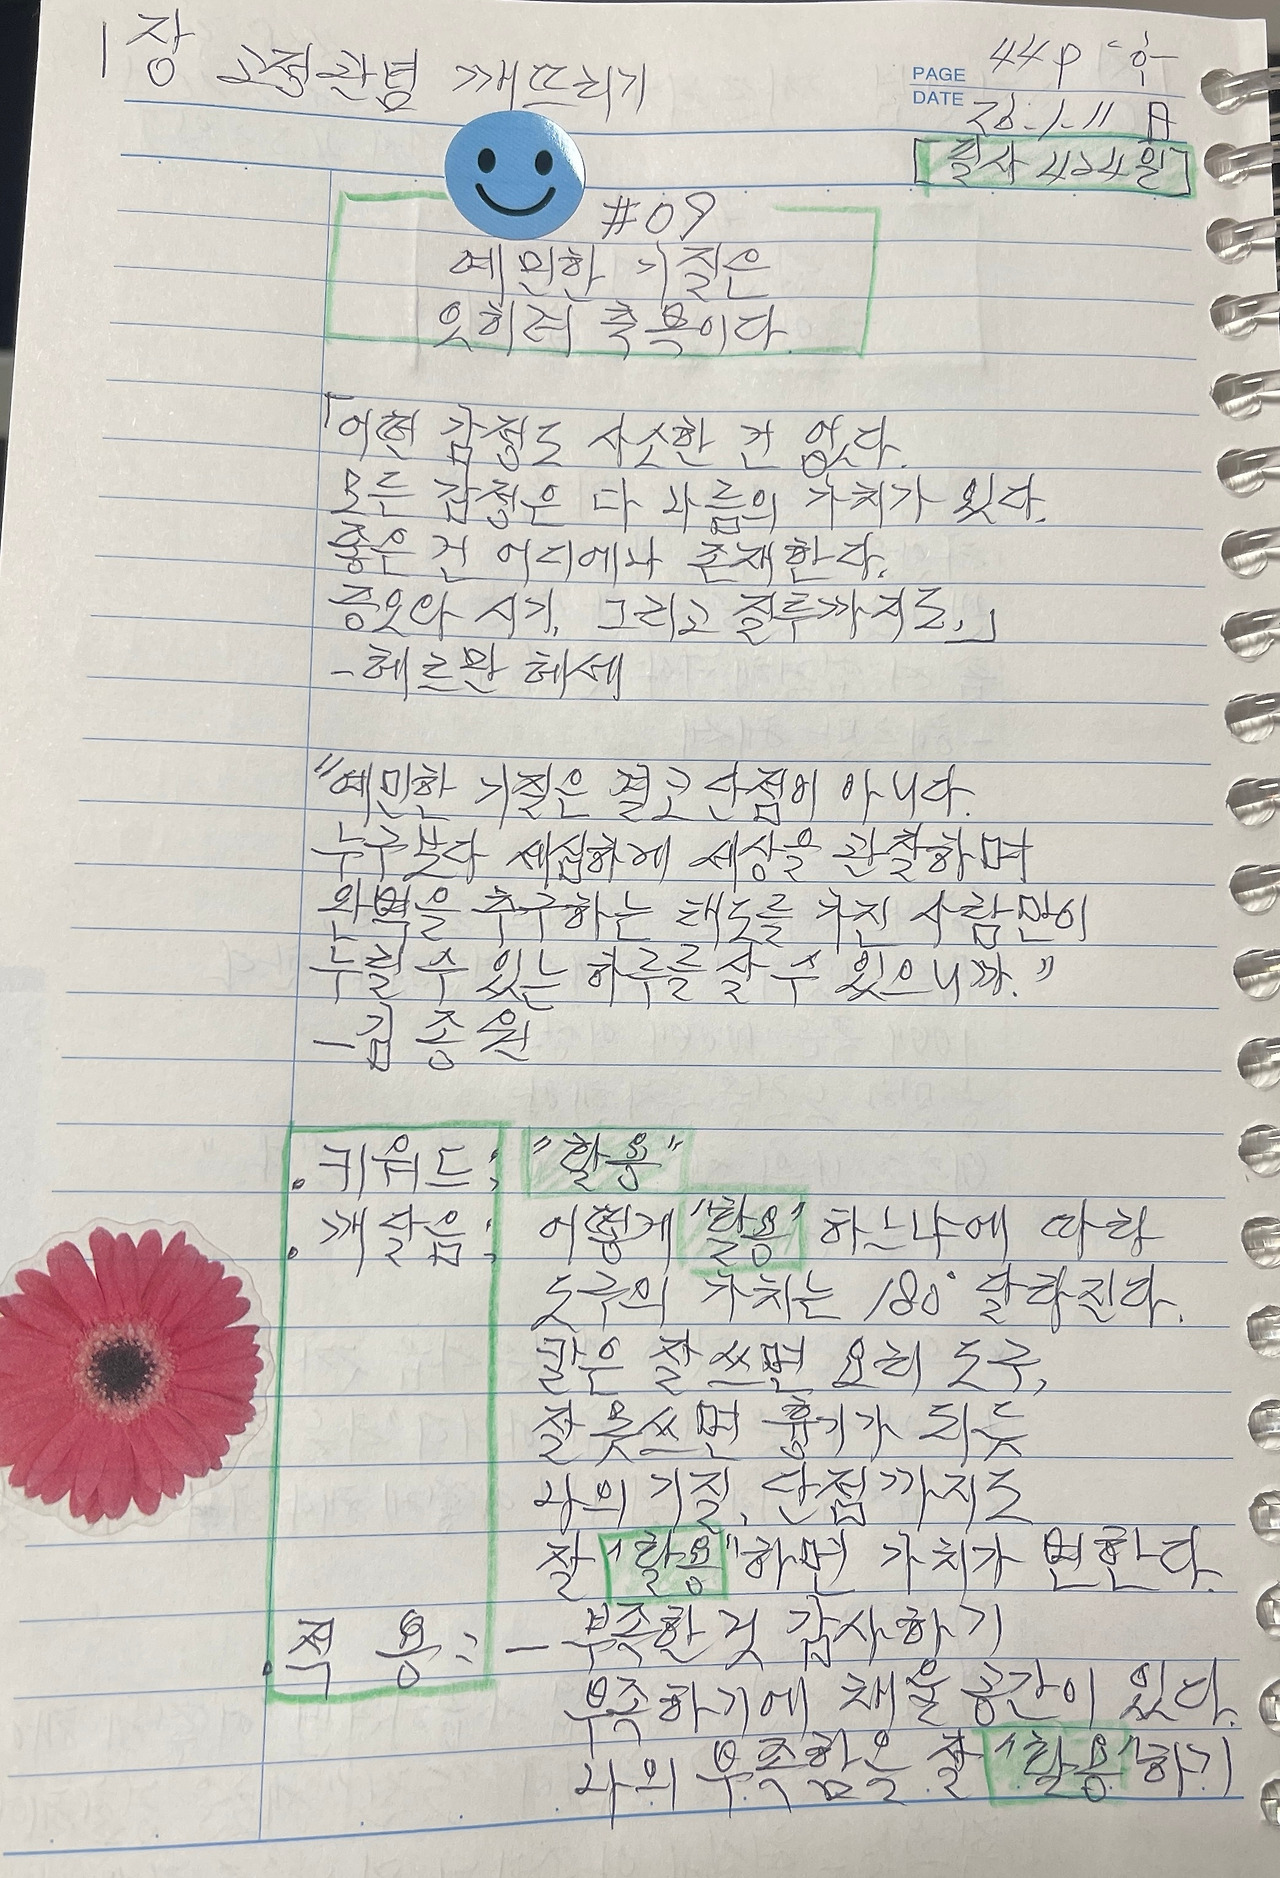 1장 고정관념 깨뜨리기
44p
PAGE
DATE 26.1.11 日
[필사 424일]
#09
예민한 기질은
오히려 축복이다
「어떤 감정도 사소한 건 없다.
모든 감정은 다 나름의 가치가 있다.
좋은 건 어디에나 존재한다.
증오와 시기, 그리고 질투까지도.」
-헤르만 헤세
"예민한 기질은 결코 단점이 아니다.
누구보다 세심하게 세상을 관찰하며
완벽을 추구하는 태도를 가진 사람만이
누릴 수 있는 하루를 살 수 있으니까."
-김종원
• 키워드: "활용"
• 깨달음: 어떻게 "활용"하느냐에 따라
도구의 가치는 180° 달라진다.
칼은 잘 쓰면 요리 도구,
잘못쓰면 흉기가 되듯
나의 기질, 단점까지도
잘 "활용"하면 가치가 변한다.
• 적 용: - 부족한 것 감사하기
부족하기에 채울 공간이 있다.
나의 부족함을 잘 "활용"하기